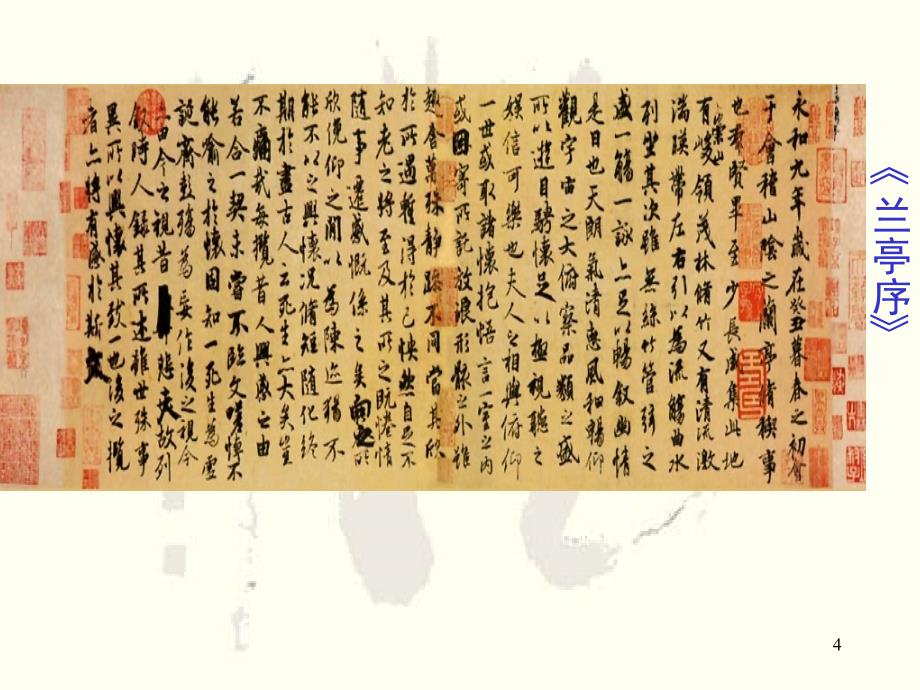 《兰亭序》
永和九年歲在癸丑暮春之初會
于會稽山陰之蘭亭脩稧事
也群賢畢至少長咸集此地
有崇山峻領茂林脩竹又有清流激
湍暎帶左右引以為流觴曲水
列坐其次雖無絲竹管弦之
盛一觴一詠亦足以暢敘幽情
是日也天朗氣清惠風和暢仰
觀宇宙之大俯察品類之盛
所以遊目騁懷足以極視聽之
娛信可樂也夫人之相與俯仰
一世或取諸懷抱悟言一室之內
或因寄所託放浪形骸之外雖
趣舍萬殊靜躁不同當其欣
於所遇暫得於己怏然自足不
知老之將至及其所之既惓情
隨事遷感慨係之矣向之所
欣俛仰之閒以為陳迹猶不
能不以之興懷況脩短隨化終
期於盡古人云死生亦大矣豈
不痛哉每攬昔人興感之由
若合一契未嘗不臨文嗟悼不
能喻之於懷固知一死生為虛
誕齊彭殤為妄作後之視今
亦由今之視昔悲夫故列
敘時人錄其所述雖世殊事
異所以興懷其致一也後之攬
者亦將有感於斯文
4